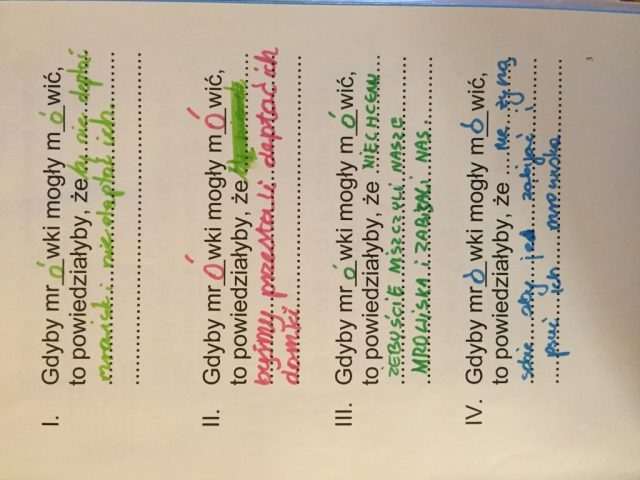 I. Gdyby mrówki mogły mówić,
to powiedziałyby, że by nie deptać
mrówek i nie deptać ich.
II. Gdyby mrÓwki mogły mÓwić,
to powiedziałyby, że
byśmy przestali deptać ich
domki
III. Gdyby mrówki mogły mówić,
to powiedziałyby, że NIECHCEMY
ŻEBYŚCIE NISZCZYLI NASZE
MROWISKA I ZABIJALI NAS.
IV. Gdyby mrówki mogły mówić,
to powiedziałyby, że nie
sobie aby zabijani i
ich mrowiska
3